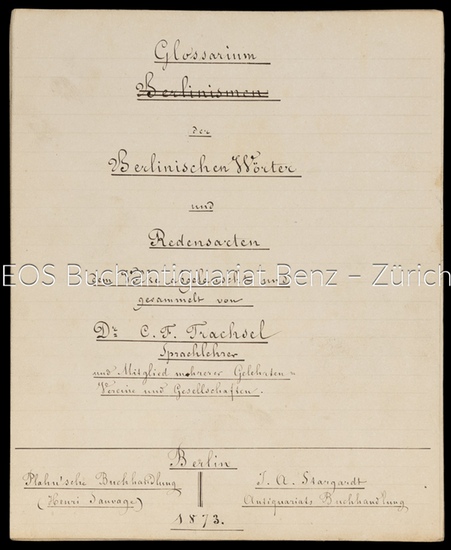 Glossarium
Berlinismen
der
Berlinischen Wörter
und
Redensarten
dem Volke abgelauscht und
EOS Buchantiquariat Benz – Zürich
gesammelt von
Dr. C. F. Trachsel
Sprachlehrer
und Mitglied mehrerer Gelehrten-
Vereine und Gesellschaften.
Berlin
Plahn'sche Buchhandlung
(Henri Sauvage)
J. A. Stargardt
Antiquariats Buchhandlung
1873.